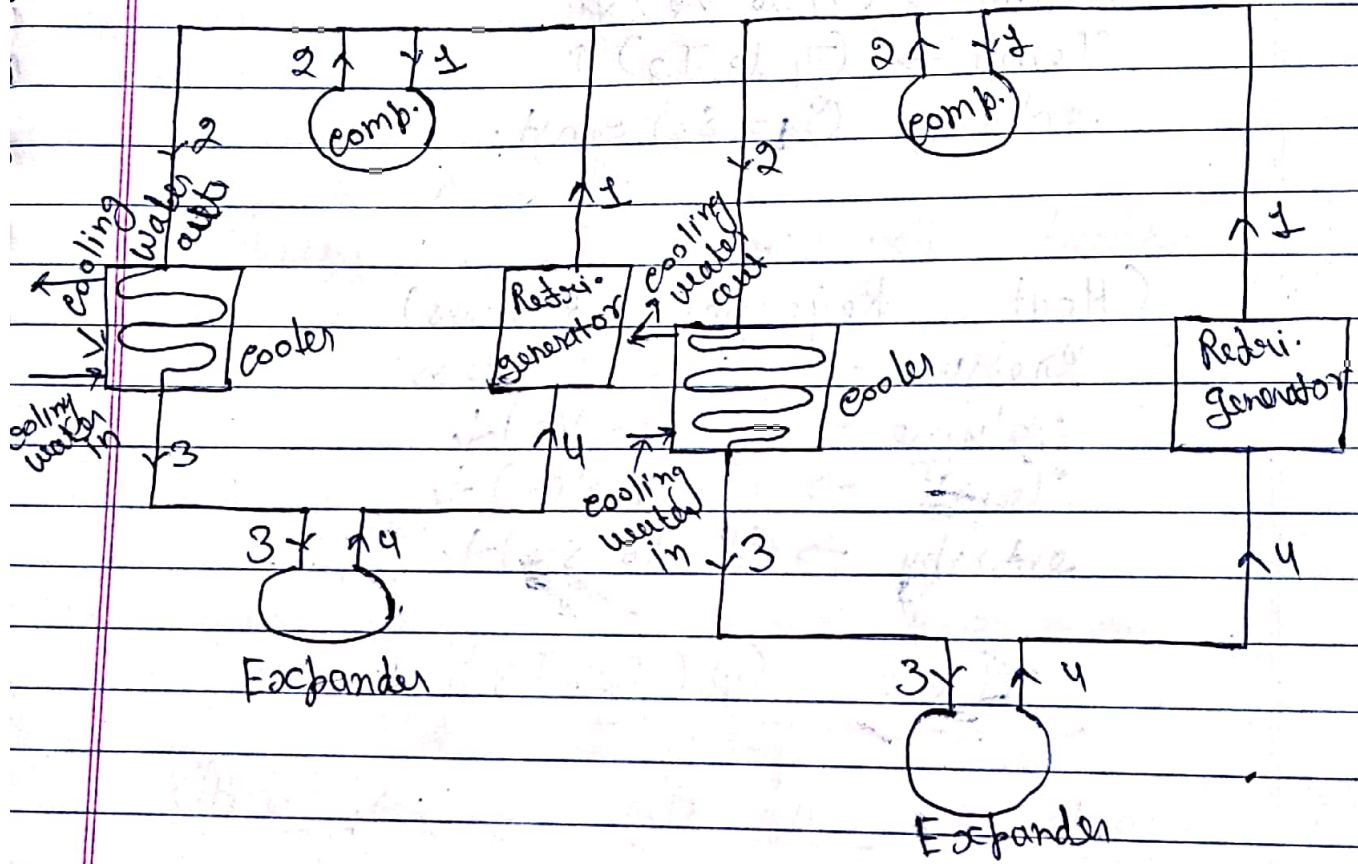 2 1
comp.
2
cooling
water
out
1
Refri.
generator
cooler
cooling
water
in
3
4
3 4
Expander
2 1
comp.
2
cooling
water
out
1
Refri.
generator
cooler
cooling
water
in
3
4
3 4
Expander